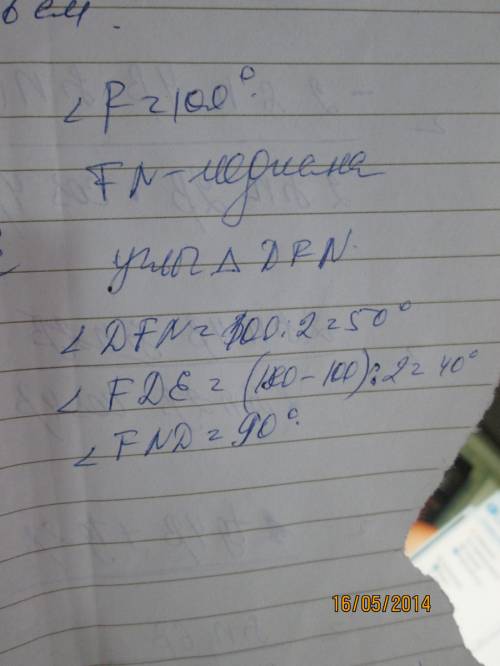 см.
∠F=100°.
FN-медиана
углы Δ DFN.
∠ DFN=100:2=50°
∠ FDE=(180-100):2=40°
∠ FND=90°.
16/05/2014